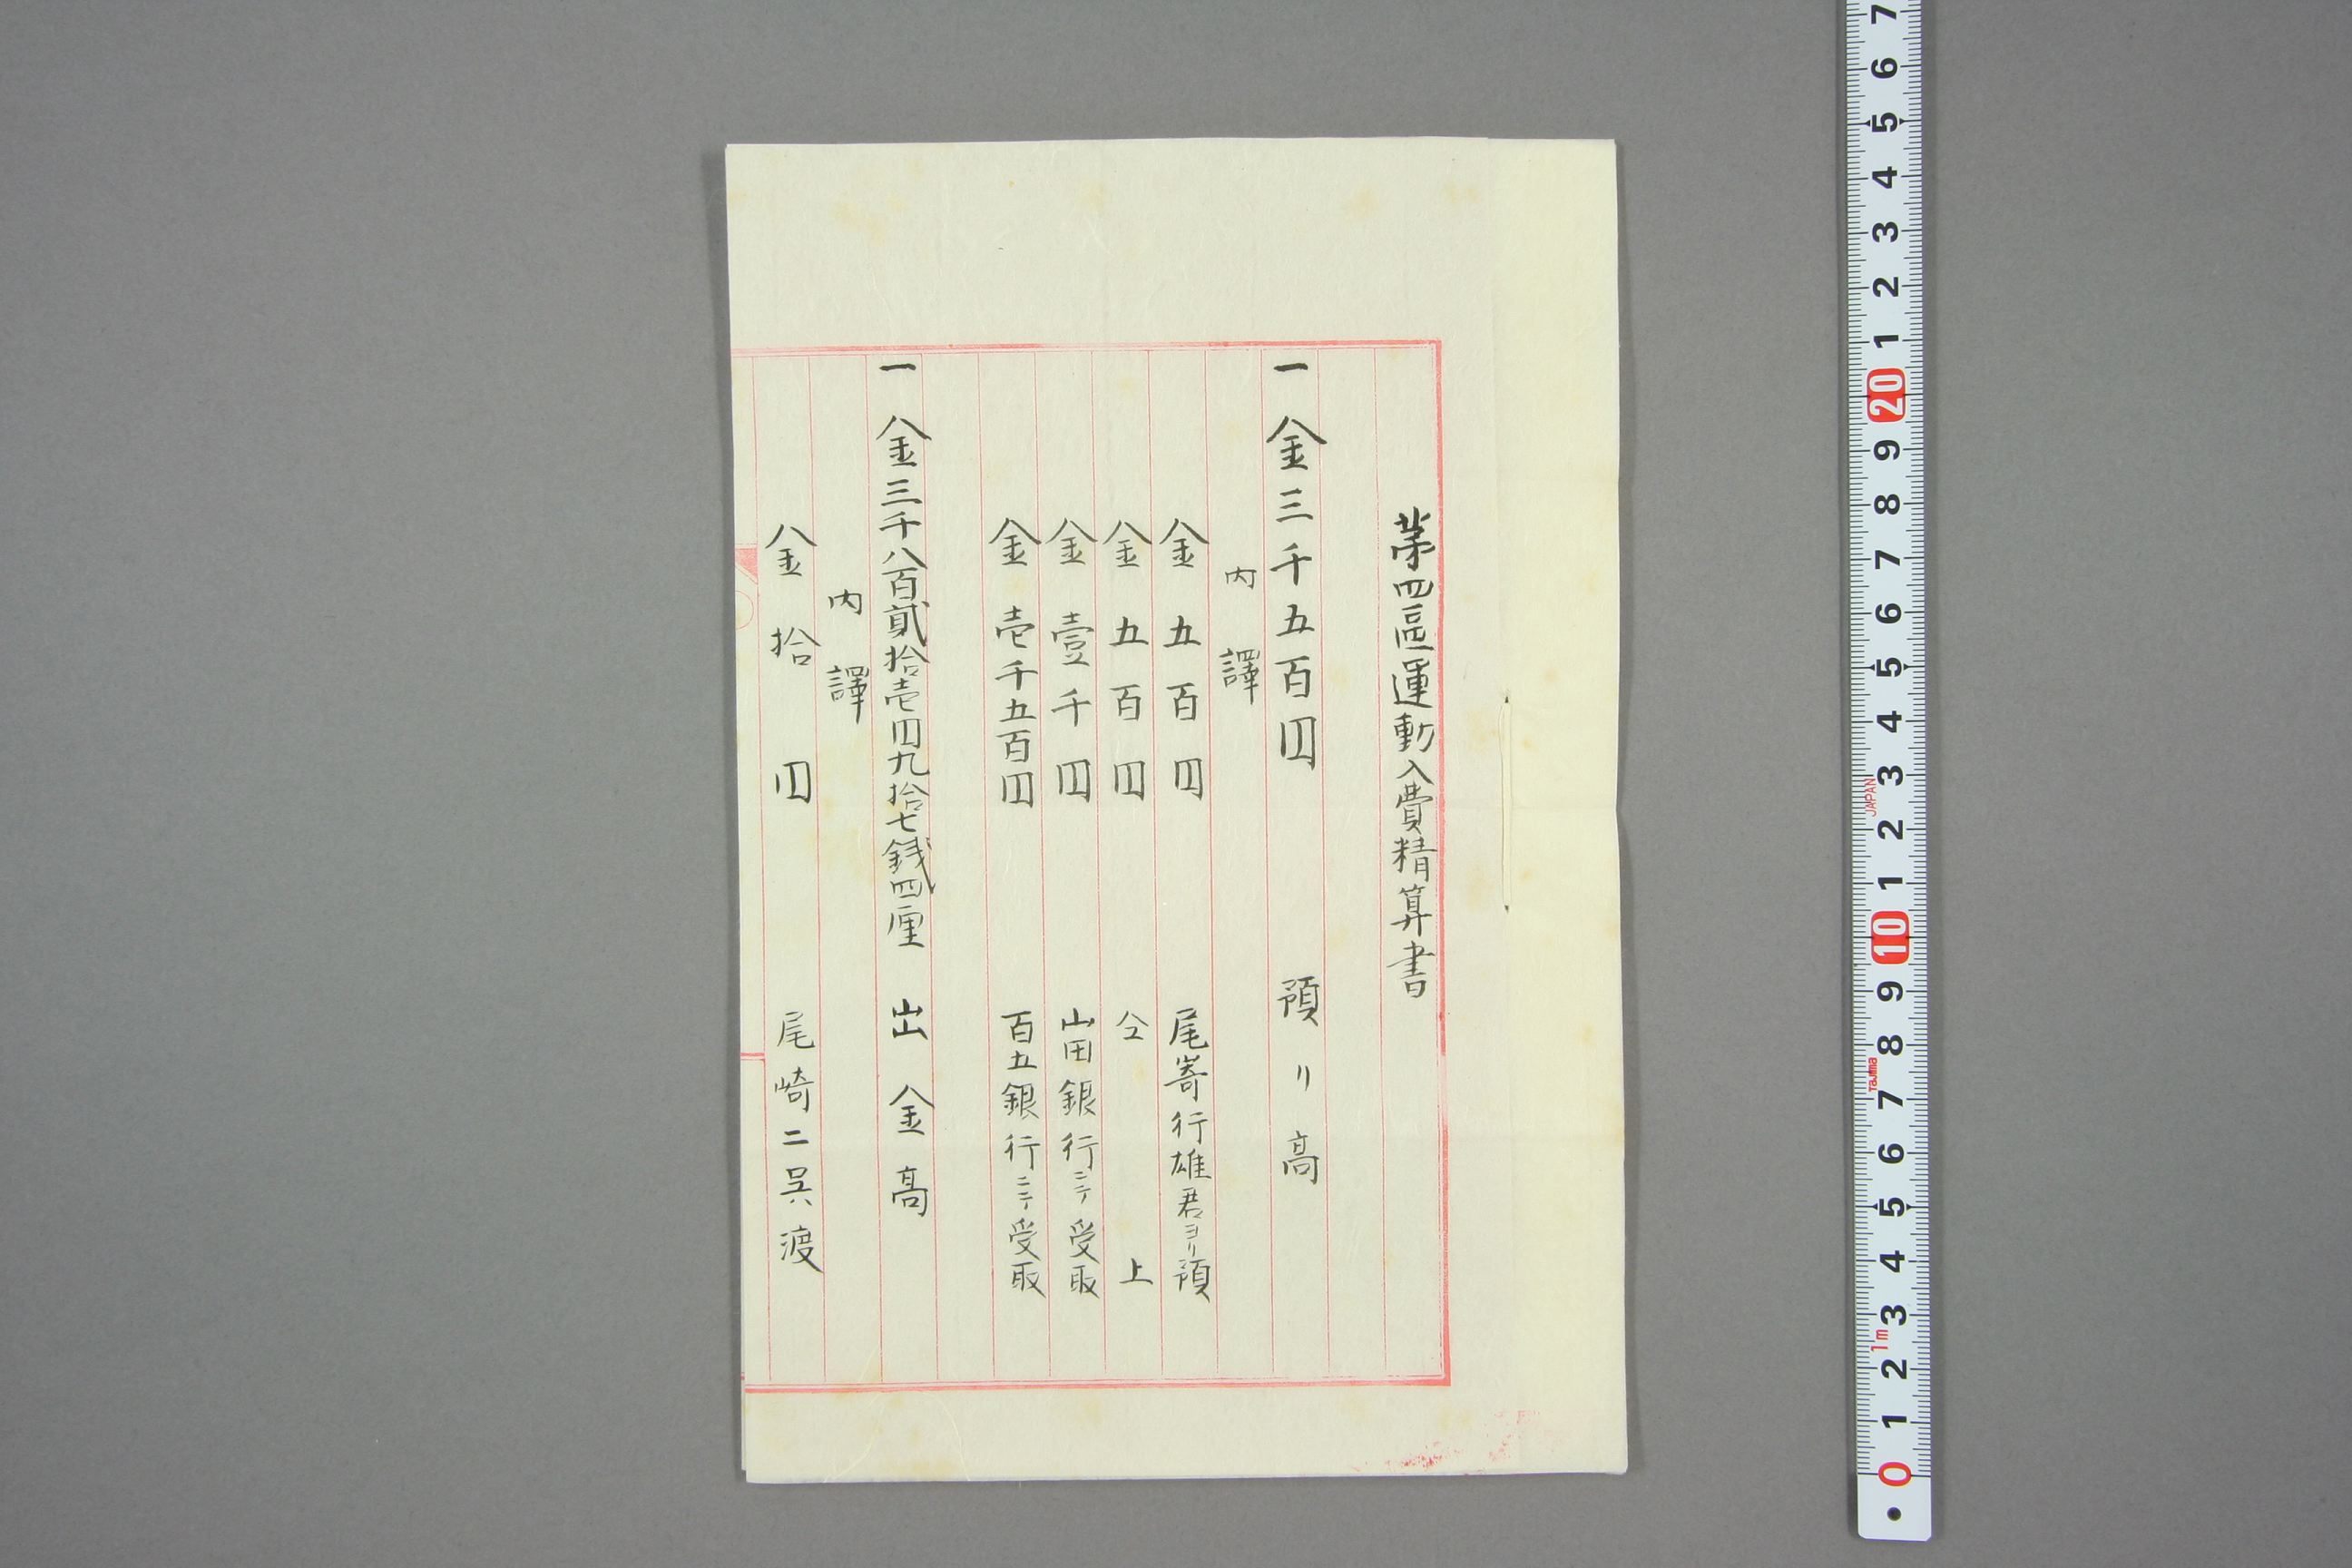 第四區運動入費精算書
一金三千五百円 預リ高
内譯
金五百円 尾㟢行雄君ヨリ預
金五百円 仝上
金壹千円 山田銀行ニテ受取
金壱千五百円 百五銀行ニテ受取
一金三千八百貳拾壱円九拾七銭四厘 出金高
内譯
金拾円 尾崎二呉渡
7
6
5
4
3
2
1
20
9
8
7
6
5
4
3
JAPAN
2
1
10
9
8
Tajima
7
6
5
4
3
1m
2
1
0